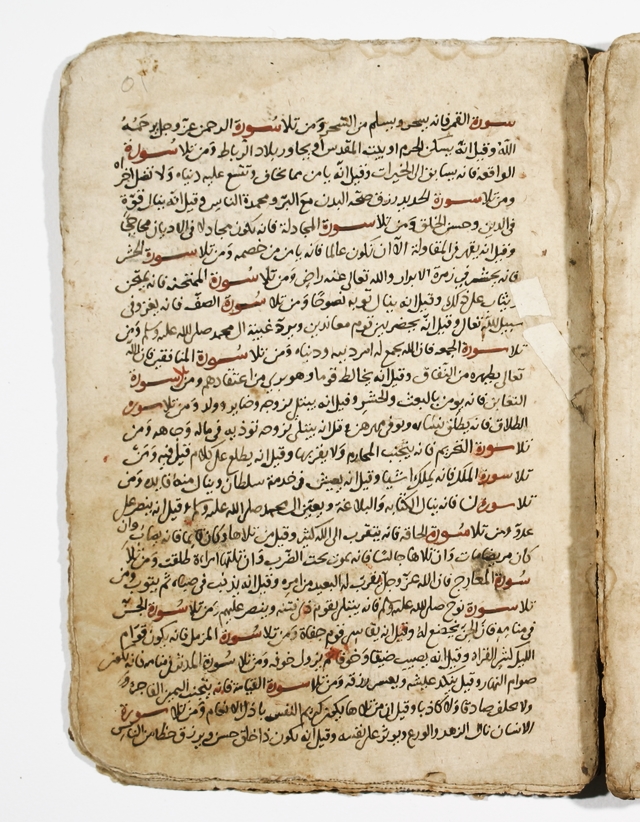 سورة القمر فانه يسحر ويسلم من السحر ومن تلا سورة الرحمن عز وجل يرحمه
الله وقيل انه يسكن الحرم او بيت المقدس او يجاور بلاد الرباط ومن تلا سورة
الواقعة فانه يسابق الى الخيرات وقيل انه يامن مما يخاف وتتسع عليه دنياه ولا
ومن تلا سورة الحديد رزق صحة البدن مع البر ومحمدة الناس وقيل انه ينال قوة
في الدين وحسن الخلق ومن تلا سورة المجادلة فانه يكون مجادلا في الاديان
وقيل انه يقهر في المقاولة الا ان يكون عالما فانه يامن من خصمه ومن تلا سورة الحشر
فانه يحشر في زمرة الابرار والله تعالى عنه راض ومن تلا سورة الممتحنة فانه يمتحن
ويثاب على ذلك وقيل انه ينال توبة نصوحا ومن تلا سورة الصف فانه يغزو في
سبيل الله تعالى وقيل انه يحضر بين قوم معاندين ويرد غيبة ال محمد صلى الله عليه وسلم ومن
تلا سورة الجمعه فان الله يجمع له امر دينه ودنياه ومن تلا سورة المنافقين فان الله
تعالى يطهره من النفاق وقيل انه يخالط قوما وهو بري من اعتقادهم ومن تلا سورة
التغابن فانه يومن بالبعث والحشر وقيل انه يبتلى بزوجه وولد ومن تلا سورة
الطلاق فانه يطلق نسائه ويوفي مهرهن وقيل انه يبتلى بزوجه توذيه في ماله وجاهه ومن
تلا سورة التحريم فانه يتجنب المحارم ولا يقربها وقيل انه يطلع على كلام قيل فيه ومن
تلا سورة الملك فانه يملك اشيا وقيل انه يعيش في خدمة سلطان وينال منه فايده ومن
تلا سورة ن فانه ينال الكتابه والبلاغه ويعين ال محمد صلى الله عليه وسلم وقيل انه ينصر على
عدوه ومن تلا سورة الحاقة فانه يتقرب الى الله وقيل من تلاها وكان قايما فانه يصاب وان
كان مريضا مات وان تلاها جالسا فانه يموت تحت الضرب وان تلتها امراة طلقت ومن تلا
سورة المعارج فان الله عز وجل يقرب له البعيد من امره وقيل انه يذنب في صباه ثم يتوب ومن
تلا سورة نوح صلى الله عليه وسلم فانه يبتلى بقوم وينصر عليهم ومن تلا سورة الجن
في منامه فان الجن تخضع له وقيل انه يقاسي قوم جفاة ومن تلا سورة المزمل فانه يكون قوام
الليل القراه وقيل انه يصيب ضيقا وخوفا ثم يزول خوفه ومن تلا سورة المدثر في منامه فانه يكون
صوام النهار وقيل ينكد عيشه ويعسر رزقه ومن تلا سورة القيامة فانه يتجنب اليمين الفاجرة
ولا يحلف صادقا ولا كاذبا وقيل ان من تلاها يكون كريم النفس ومن تلا سورة
الانسان نال الزهد والورع ويوثر على نفسه وقيل انه يكون ذا خلق حسن ويرزق حظا من الناس